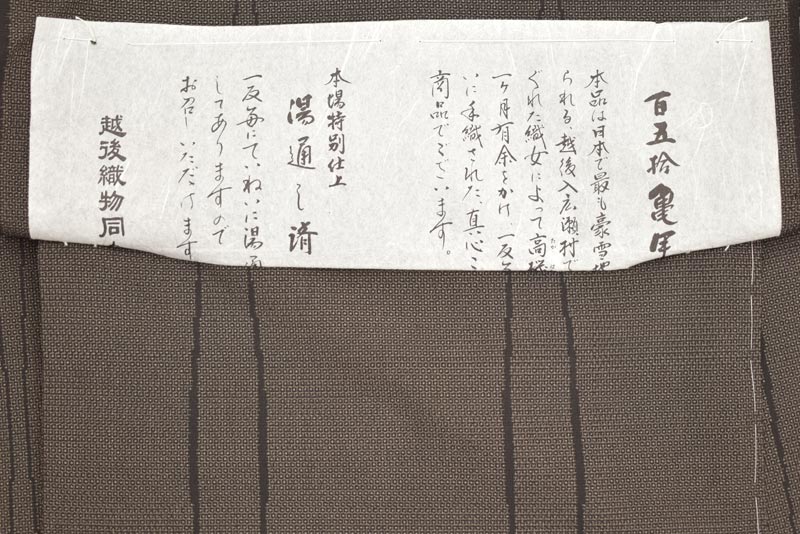 百五拾亀甲
本品は日本で最も豪雪地
られる越後入広瀬村で
ぐれた織女によって高機
一ヶ月有余をかけ一反
いに手織された、真心こ
商品でございます。
本場特別仕上
湯通し済
一反毎にていねいに湯通
してありますので
お召しいただけます
越後織物同